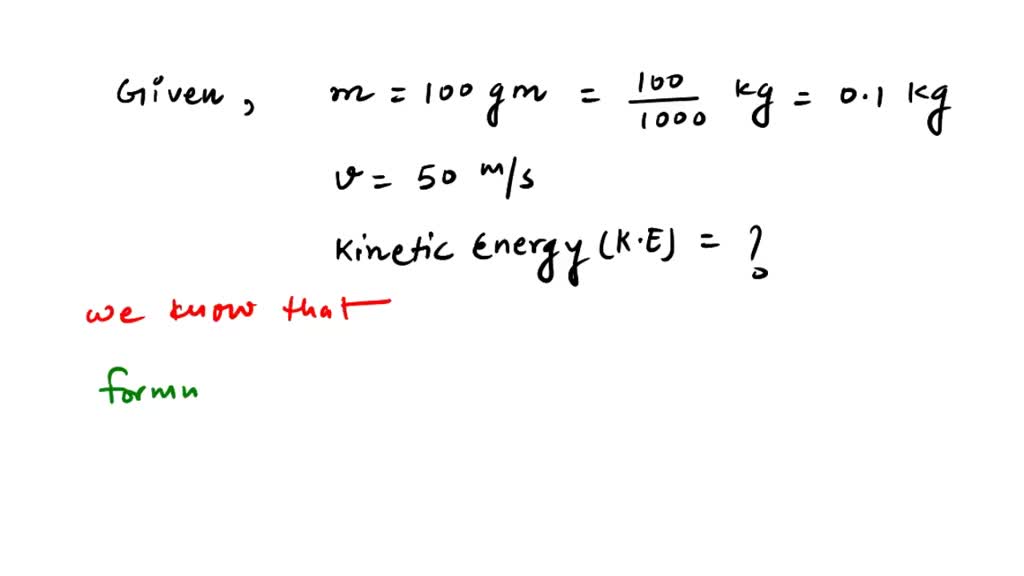 Given, m = 100 gm = 100/1000 kg = 0.1 kg
v = 50 m/s
Kinetic Energy (K.E) = ?
we know that
formu